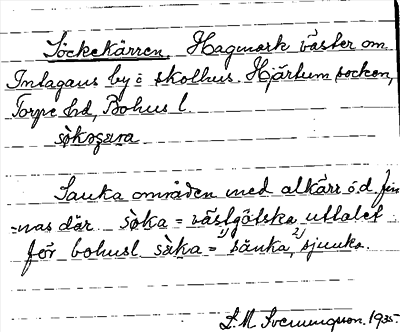 Söckekärren. Hagmark väster om
Intagans by ö skolhus. Hjärtum socken,
Torpe hd, Bohus l.
Sanka områden med alkärr o.d. fin
=nas där. söka = västgötska uttalet
för bohusl. säka = 1) sänka, 2) sjunka.
S. M. Svenungsson. 1935.